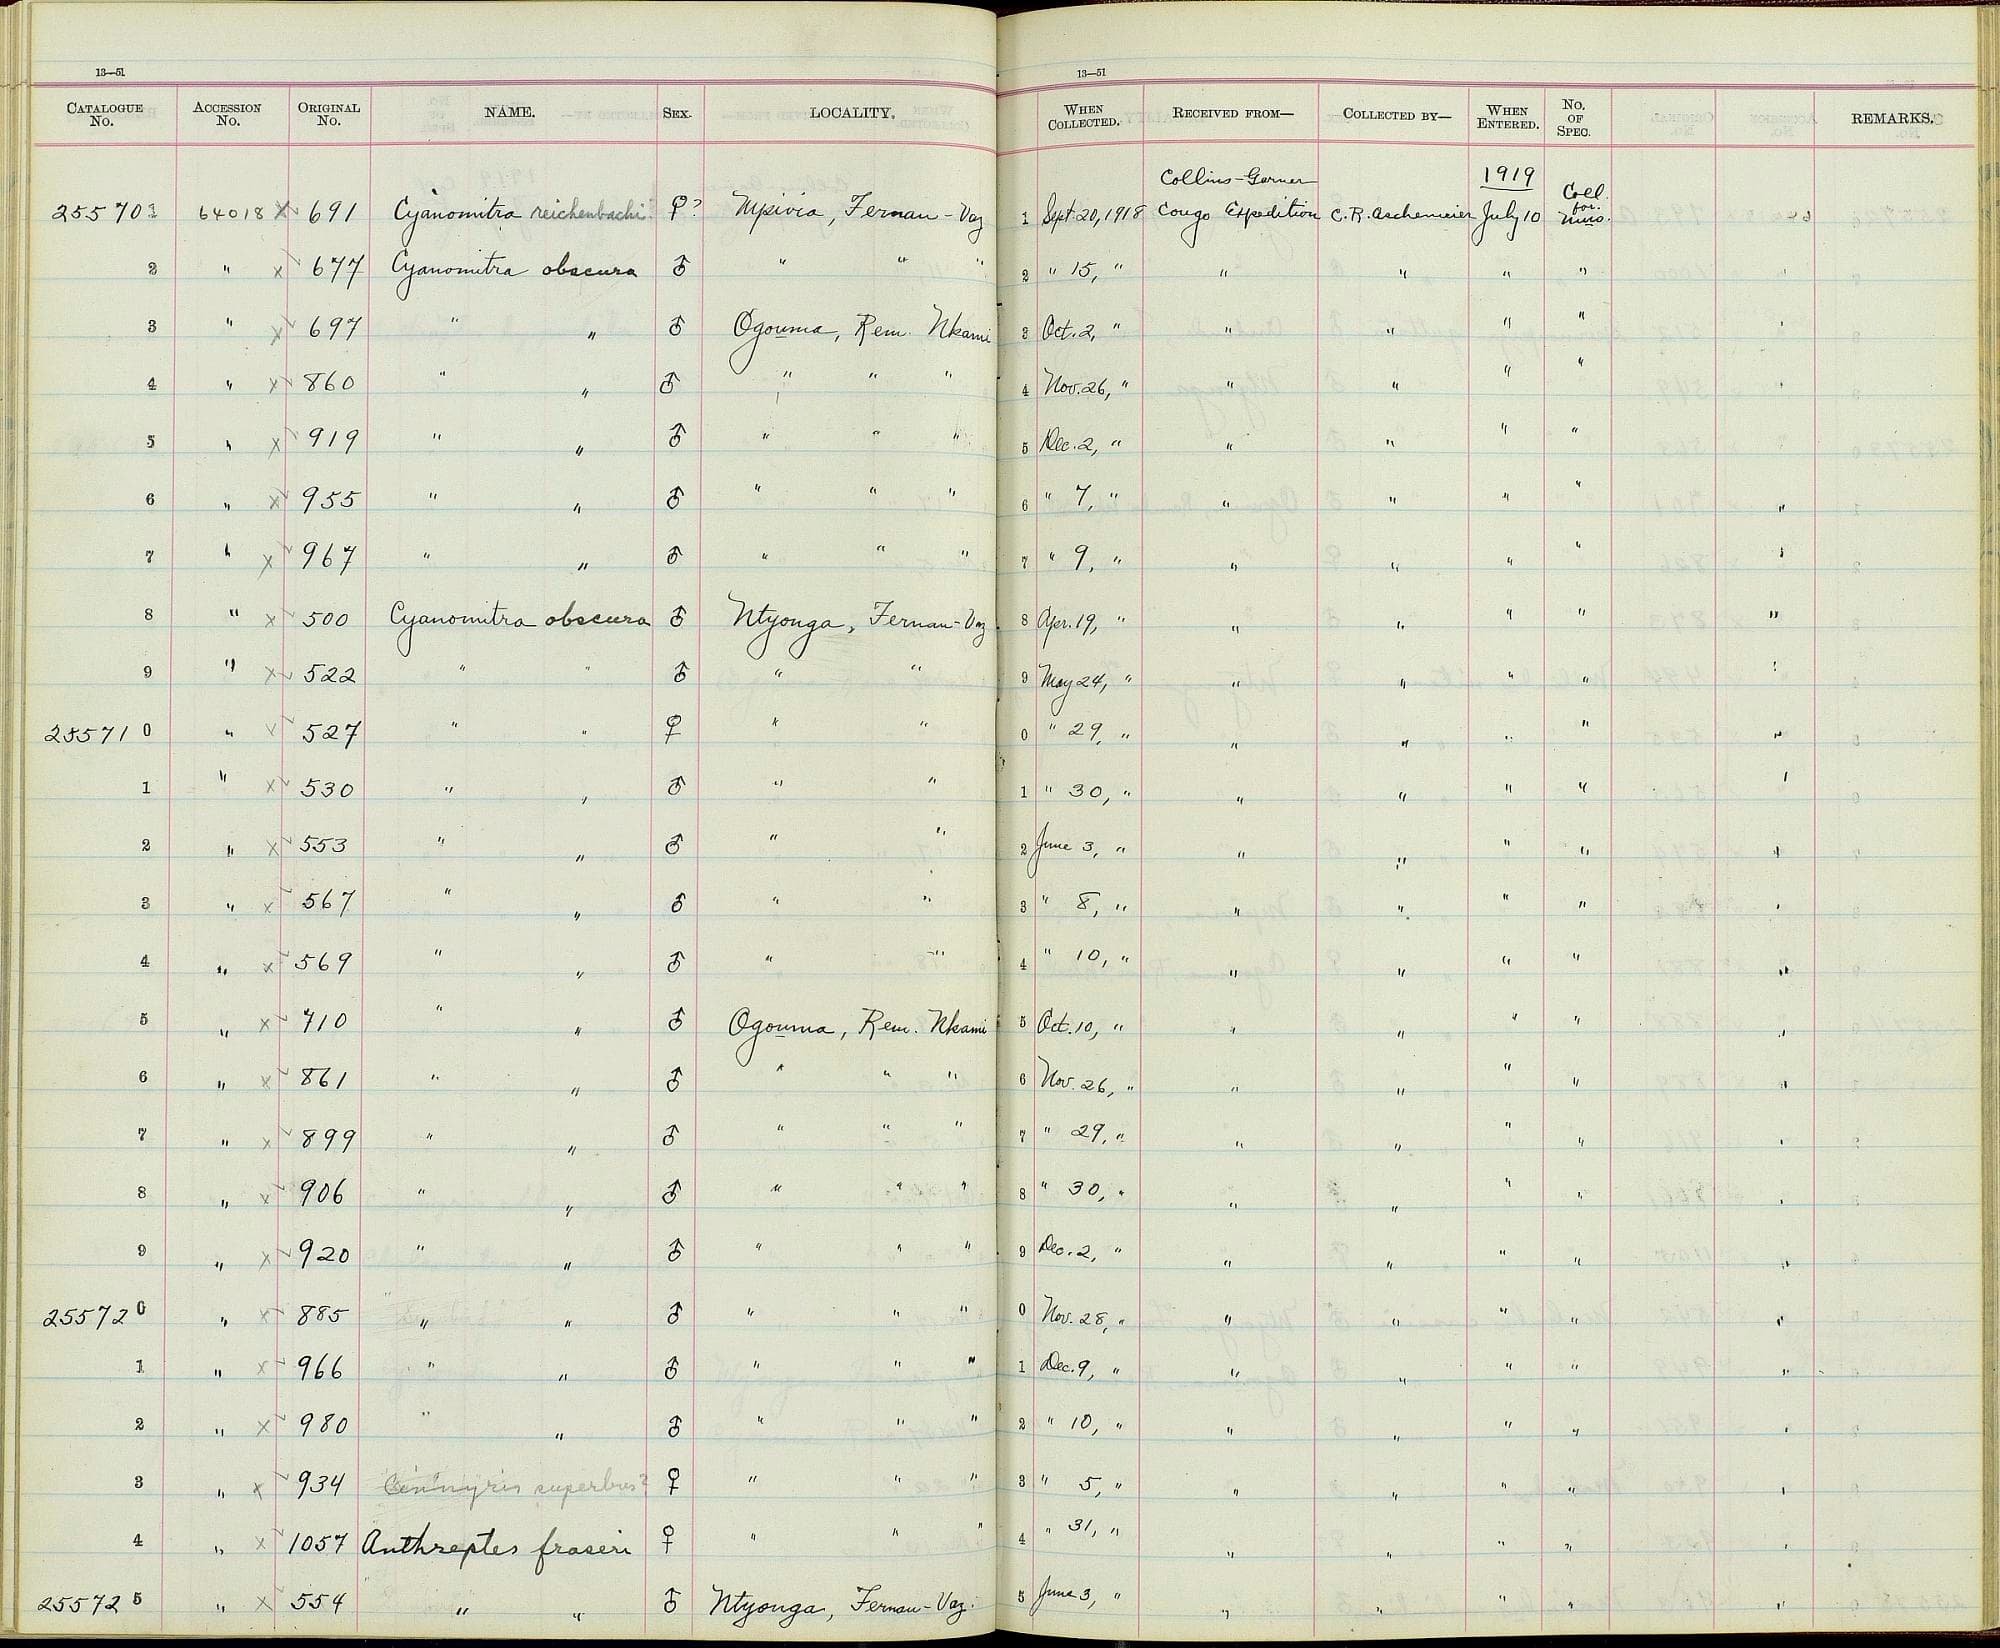 13—51
13—51
CATALOGUE No. ACCESSION No. ORIGINAL No. NAME. SEX. LOCALITY. WHEN COLLECTED. RECEIVED FROM— COLLECTED BY— WHEN ENTERED. No. OF SPEC. REMARKS.
Collins-Garner 1919
255701 64018 x ✓ 691 Cyanomitra reichenbachi? ♀? Mpivia, Fernan-Vaz 1 Sept. 20, 1918 Congo Expedition C. R. Aschemeier July 10 Coll. for. Mus.
2 " x ✓ 677 Cyanomitra obscura ♂ " " " 2 " 15, " " " " "
3 " x ✓ 697 " " ♂ Ogouma, Rem. Nkami 3 Oct. 2, " " " " "
4 " x ✓ 860 " " ♂ " " " 4 Nov. 26, " " " " "
5 " x ✓ 919 " " ♂ " " " 5 Dec. 2, " " " " "
6 " x ✓ 955 " " ♂ " " " 6 " 7, " " " " " "
7 " x ✓ 967 " " ♂ " " " 7 " 9, " " " " " "
8 " x ✓ 500 Cyanomitra obscura ♂ Ntyonga, Fernan-Vaz 8 Apr. 19, " " " " " "
9 " x ✓ 522 " " ♂ " " 9 May 24, " " " " " "
255710 " ✓ ✓ 527 " " ♀ " " 0 " 29, " " " " " "
1 " x ✓ 530 " " ♂ " " 1 " 30, " " " " " "
2 " x ✓ 553 " " ♂ " " 2 June 3, " " " " " "
3 " x ✓ 567 " " ♂ " " 3 " 8, " " " " " "
4 " x ✓ 569 " " ♂ " " 4 " 10, " " " " " "
5 " x ✓ 710 " " ♂ Ogouma, Rem. Nkami 5 Oct. 10, " " " " " "
6 " x ✓ 861 " " ♂ " " " 6 Nov. 26, " " " " " "
7 " x ✓ 899 " " ♂ " " " 7 " 29, " " " " " "
8 " x ✓ 906 " " ♂ " " " 8 " 30, " " " " " "
9 " x ✓ 920 " " ♂ " " " 9 Dec. 2, " " " " " "
255720 " x ✓ 885 " " ♂ " " " 0 Nov. 28, " " " " " "
1 " x ✓ 966 " " ♂ " " " 1 Dec. 9, " " " " " "
2 " x ✓ 980 " " ♂ " " " 2 " 10, " " " " " "
3 " x ✓ 934 Cinnyris superbus? ♀ " " " 3 " 5, " " " " " "
4 " x ✓ 1057 Anthreptes fraseri ♀ " " " 4 " 31, " " " " " "
255725 " x ✓ 554 " " ♂ Ntyonga, Fernan-Vaz. 5 June 3, " " " " " "